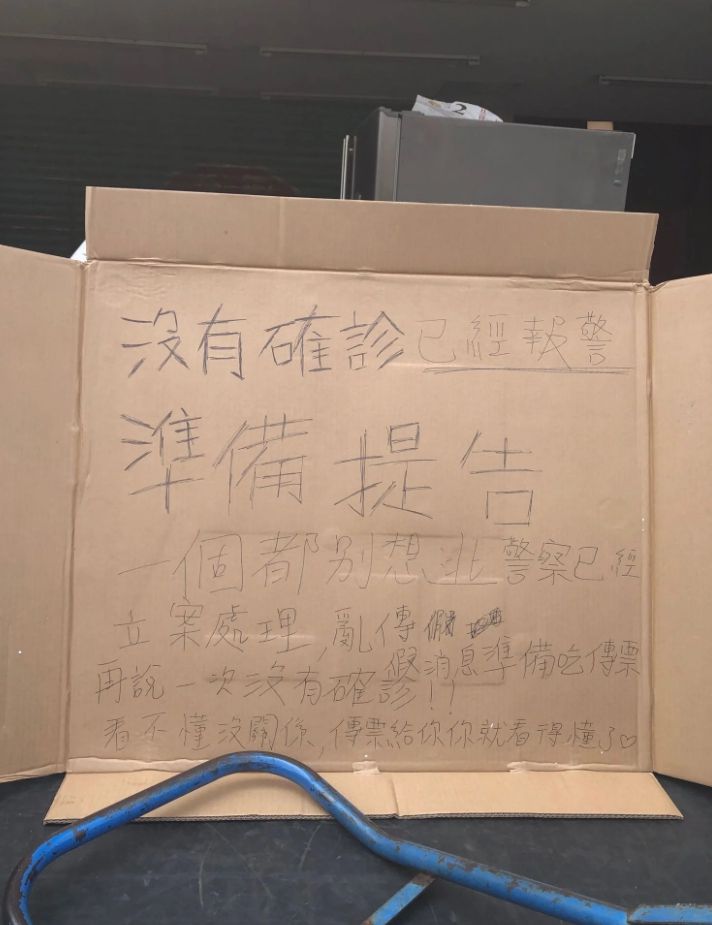 2
沒有確診已經報警
準備提告
一個都別想逃警察已經
立案處理,亂傳假
假消息準備吃傳票
再說一次沒有確診!!
看不懂沒關係,傳票給你你就看得懂了♡